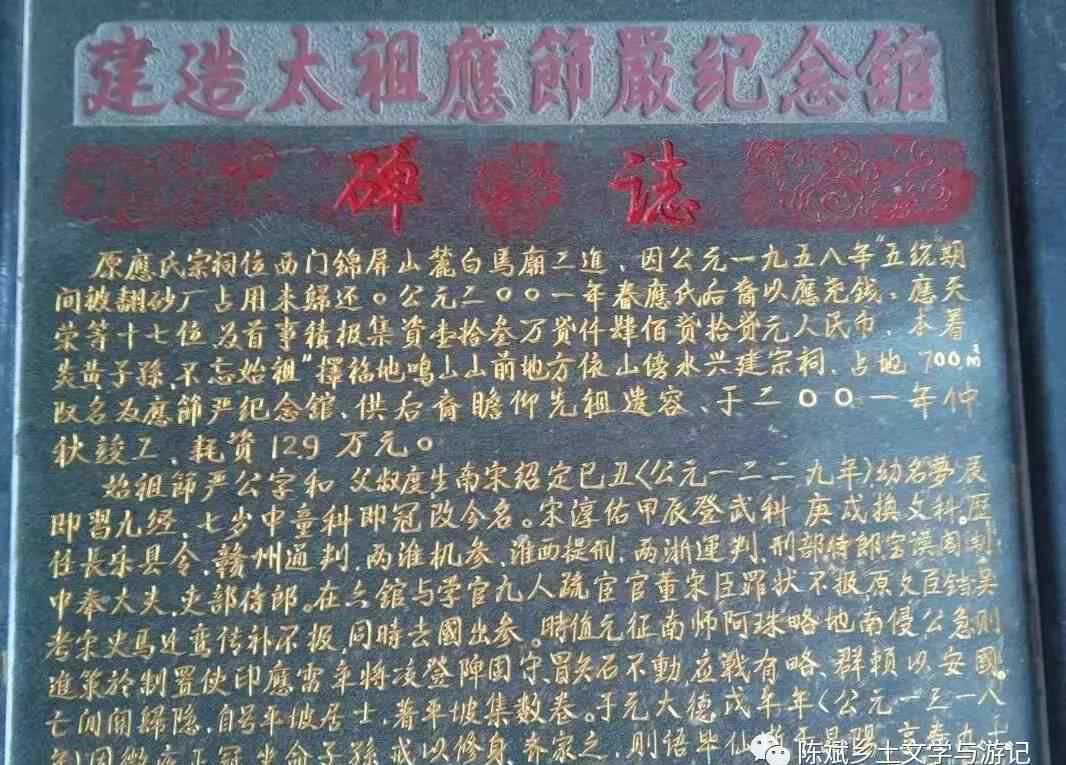 建造太祖應節嚴纪念舘
碑誌
原應氏宗祠位西门錦屏山麓白馬廟二進、因公元一九五八年“五统”期
间被翻砂厂占用未歸还。公元二〇〇一年春應氏后裔以應尧钱、應天
荣等十七位为首事積极集資壹拾叁万贰仟肆佰贰拾贰元人民币，本着
炎黄子孫，不忘始祖”擇福地鳴山山前地方依山傍水兴建宗祠，占地700㎡
取名为應節严纪念舘、供后裔瞻仰先祖遗容、于二〇〇一年仲
秋竣工、耗资129万元。
始祖節严公字和父叔度生南宋绍定已丑（公元一二二九年）幼名夢辰
即習九经，七岁中童科即冠改今名。宋淳佑甲辰登武科庚戌换文科。歷
任长乐县令、赣州通判，两淮机参，淮西提刑，两浙運判，刑部侍郎
中奉大夫，吏部侍郎。在六舘与学官九人疏宦官董宋臣罪状不报，原文臣
考宋史馬廷鸾传补不报，同時去國出参。時值元征南师阿珠略地南侵公急则
進策於制置使印應雷率将凌登陴固守冒矢石不動，应戰有略、群頼以安國
亡间関歸隐，自号平坡居士，著平坡集数卷。于元大德戊年（公元一三一八
年）因微疾正冠坐命子孫戒以修身、齐家之，则语毕
陈斌乡土文学与游记